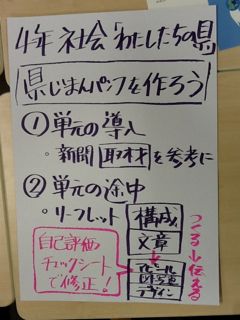 4年 社会「わたしたちの県」
県じまんパンフを作ろう
①単元の導入
・新聞 取材 を参考に
②単元の途中
・リーフレット
構成
文章
デザイン
つくる⇔伝える
自己評価
チェックシート
で修正!